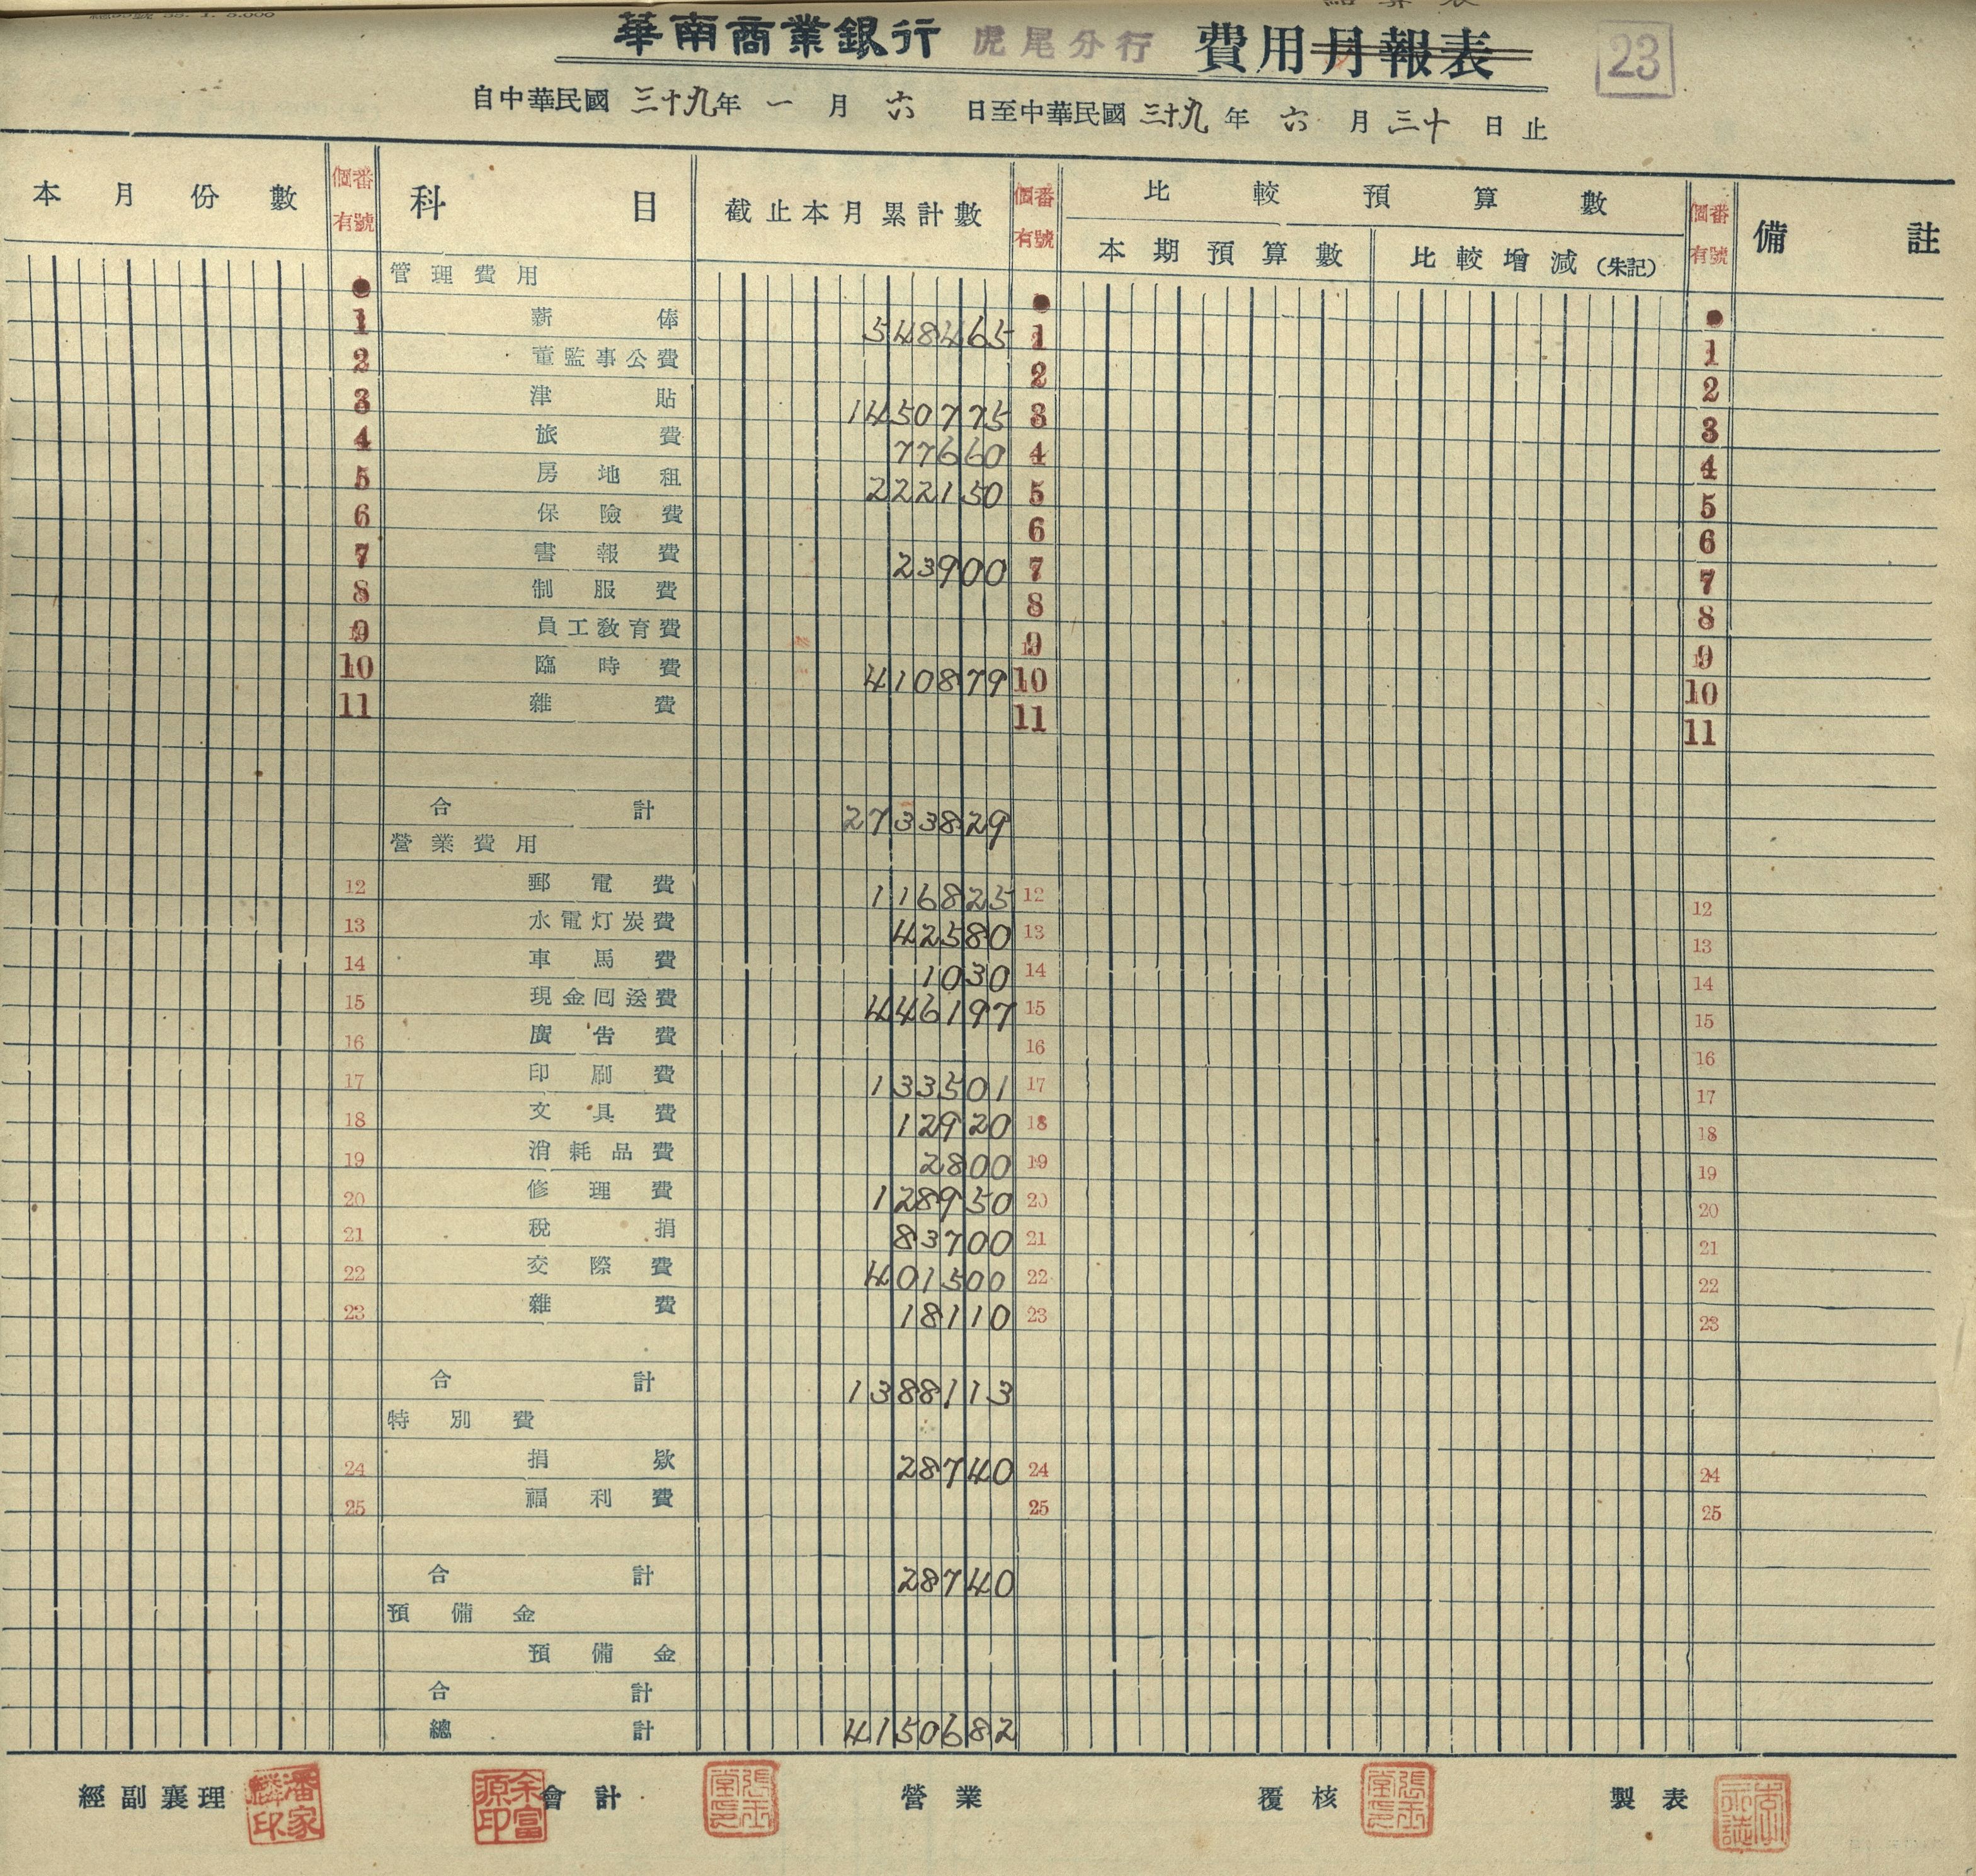 華南商業銀行 虎尾分行 費用月報表 23
自中華民國 三十九年 一 月 六 日至中華民國 三十九 年 六 月 三十 日止
本月份數 個有 番號 科目 截止本月累計數 個有 番號 比較預算數 個有 番號 備註
本期預算數 比較增減(朱記)
管理費用
1 薪俸 548465 1 1
2 董監事公費 2 2
3 津貼 1450775 3 3
4 旅費 77660 4 4
5 房地租 222150 5 5
6 保險費 6 6
7 書報費 23900 7 7
8 制服費 8 8
9 員工教育費 9 9
10 臨時費 410879 10 10
11 雜費 11 11
合計 2733829
營業費用
12 郵電費 116825 12 12
13 水電灯炭費 42580 13 13
14 車馬費 1030 14 14
15 現金囘送費 446197 15 15
16 廣告費 16 16
17 印刷費 133501 17 17
18 文具費 12920 18 18
19 消耗品費 2800 19 19
20 修理費 128950 20 20
21 稅捐 83700 21 21
22 交際費 401500 22 22
23 雜費 18110 23 23
合計 1388113
特別費
24 捐欵 28740 24 24
25 福利費 25 25
合計 28740
預備金
預備金
合計
總計 4150682
經副襄理 潘家麟印 余富源印 會計 營業 覆核 製表